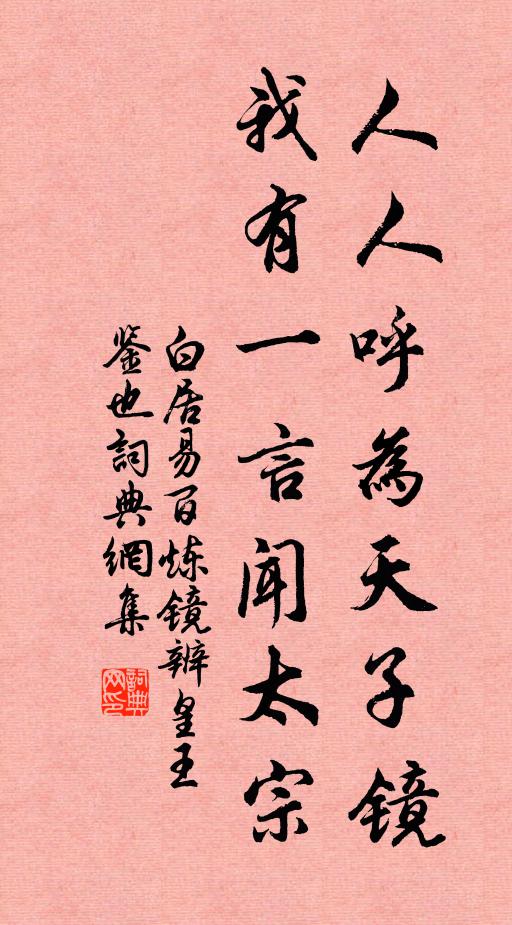 人人呼為天子镜
我有一言闻太宗
白居易百炼镜辨皇王
鉴也詞典網集
詞典
网印